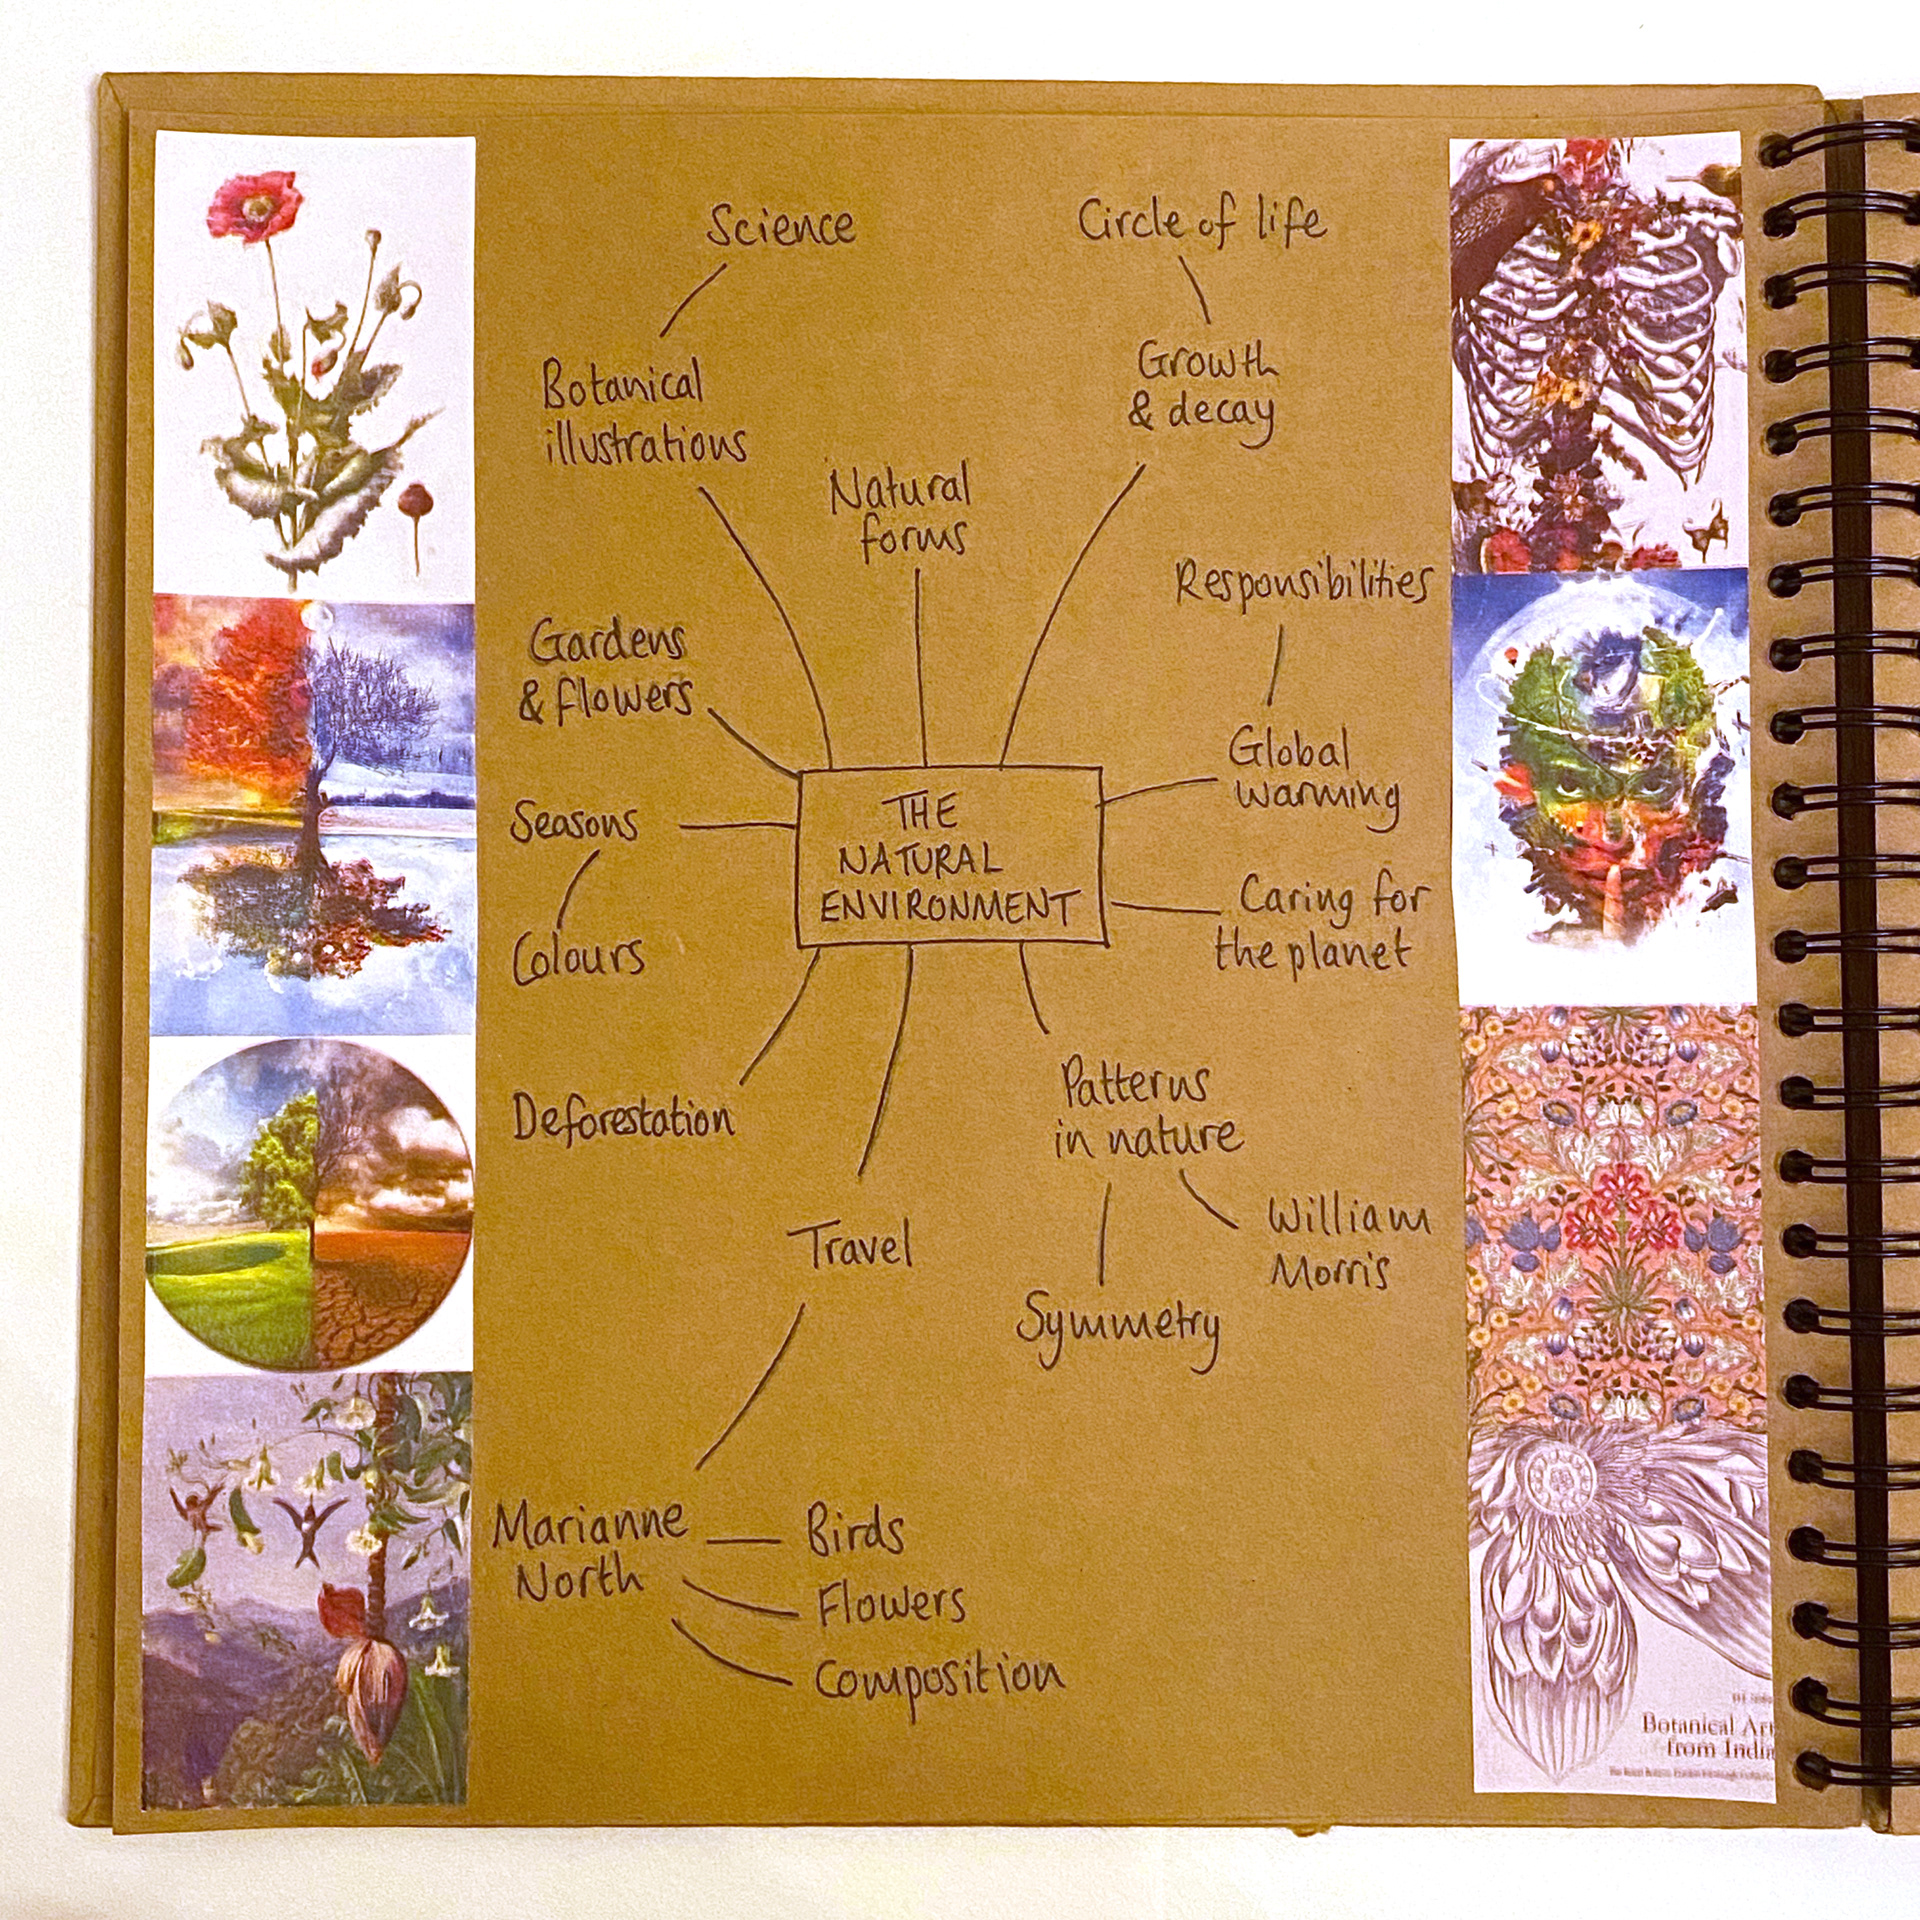 Science
Circle of life
Botanical
illustrations
Growth
& decay
Natural
forms
Responsibilities
Gardens
& flowers
Global
warming
Seasons
THE
NATURAL
ENVIRONMENT
Caring for
the planet
Colours
Deforestation
Patterns
in nature
Travel
William
Morris
Symmetry
Marianne
North
Birds
Flowers
Composition
Botanical Art
from India